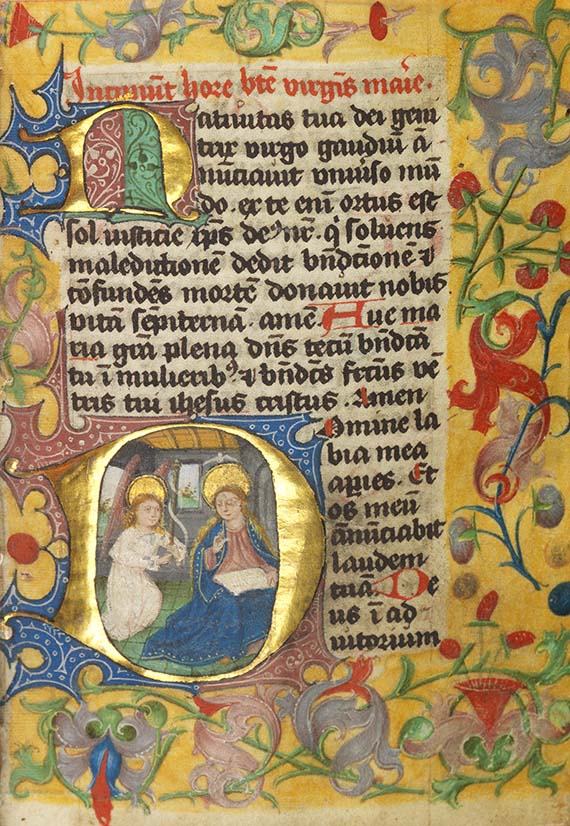 Incipiūt hore btē virgīs marie.
Natiuitas tua dei geni
trix virgo gaudiū ā
nūciauit vniuſo mū
do. ex te eni ortus est
sol iusticie xp̄s deꝰ nr̄. q̄ soluens
maledictionē dedit bn̄dictionē ⁊
cōfundēs mortē donauit nobis
vitā sēpiternā. amē. Aue ma
ria grā̄ plena dn̄s tecū bn̄dcā
tu ī mulieribꝰ ⁊ bn̄dcs fctus vē
tris tui ihesus cristus. Amen
Domine la
bia mea
aperies. Et
os meū
ānūciabit
laudem
tuā. De
us ī ad
iutorium